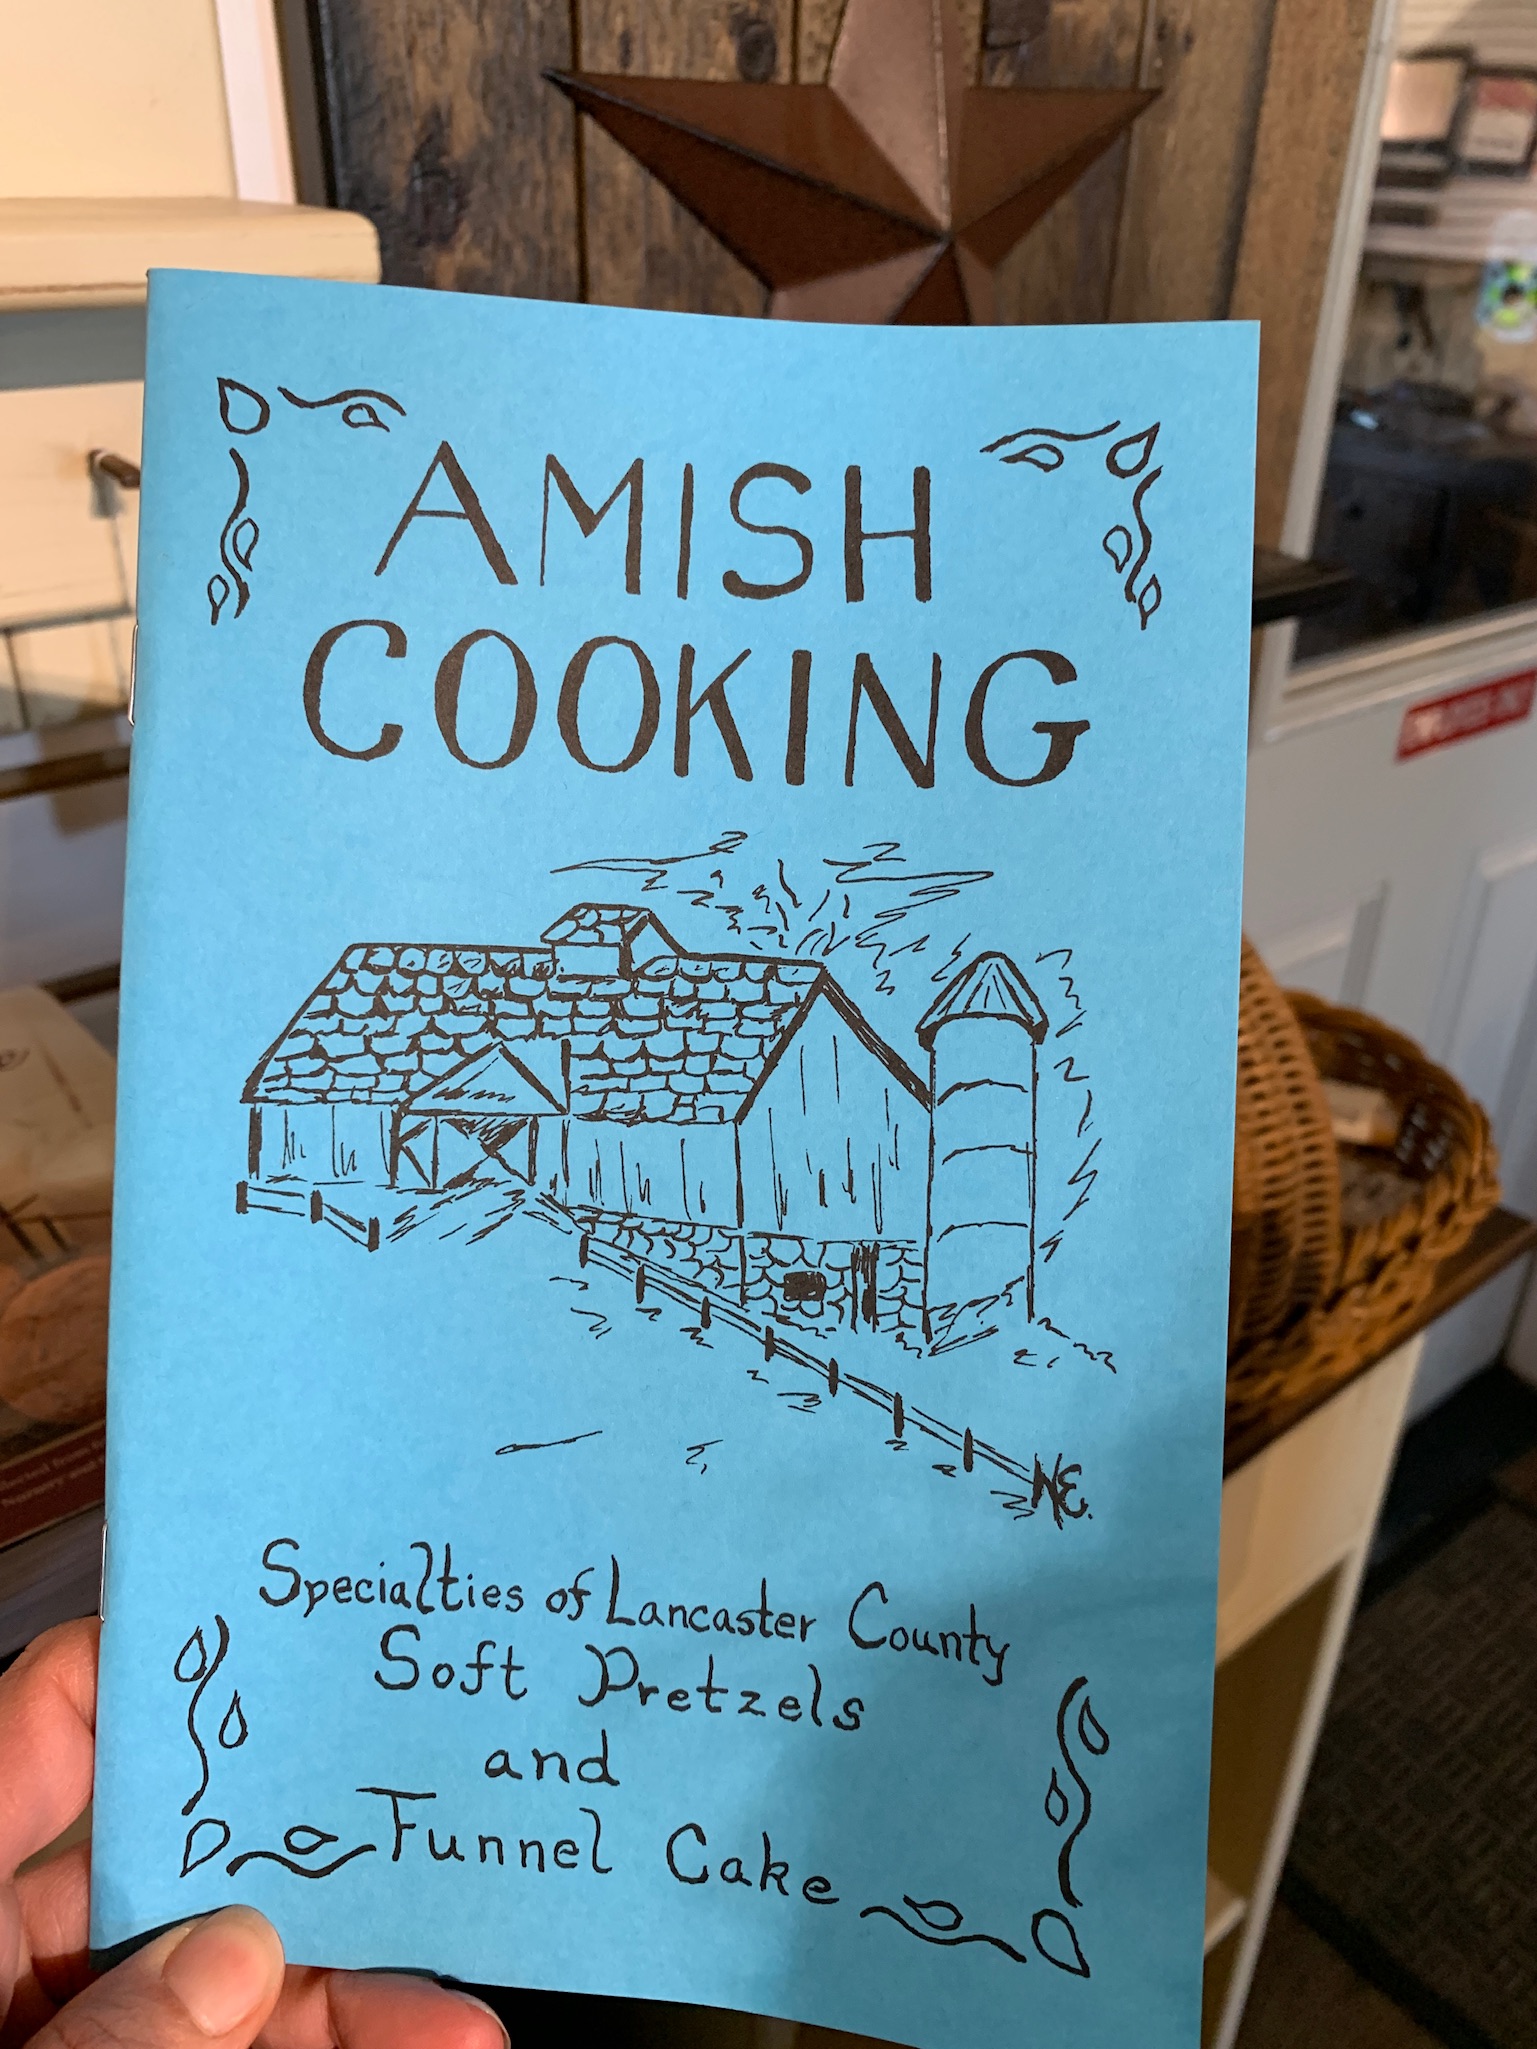 AMISH
COOKING
NE.
Specialties of Lancaster County
Soft Pretzels
and
Funnel Cake